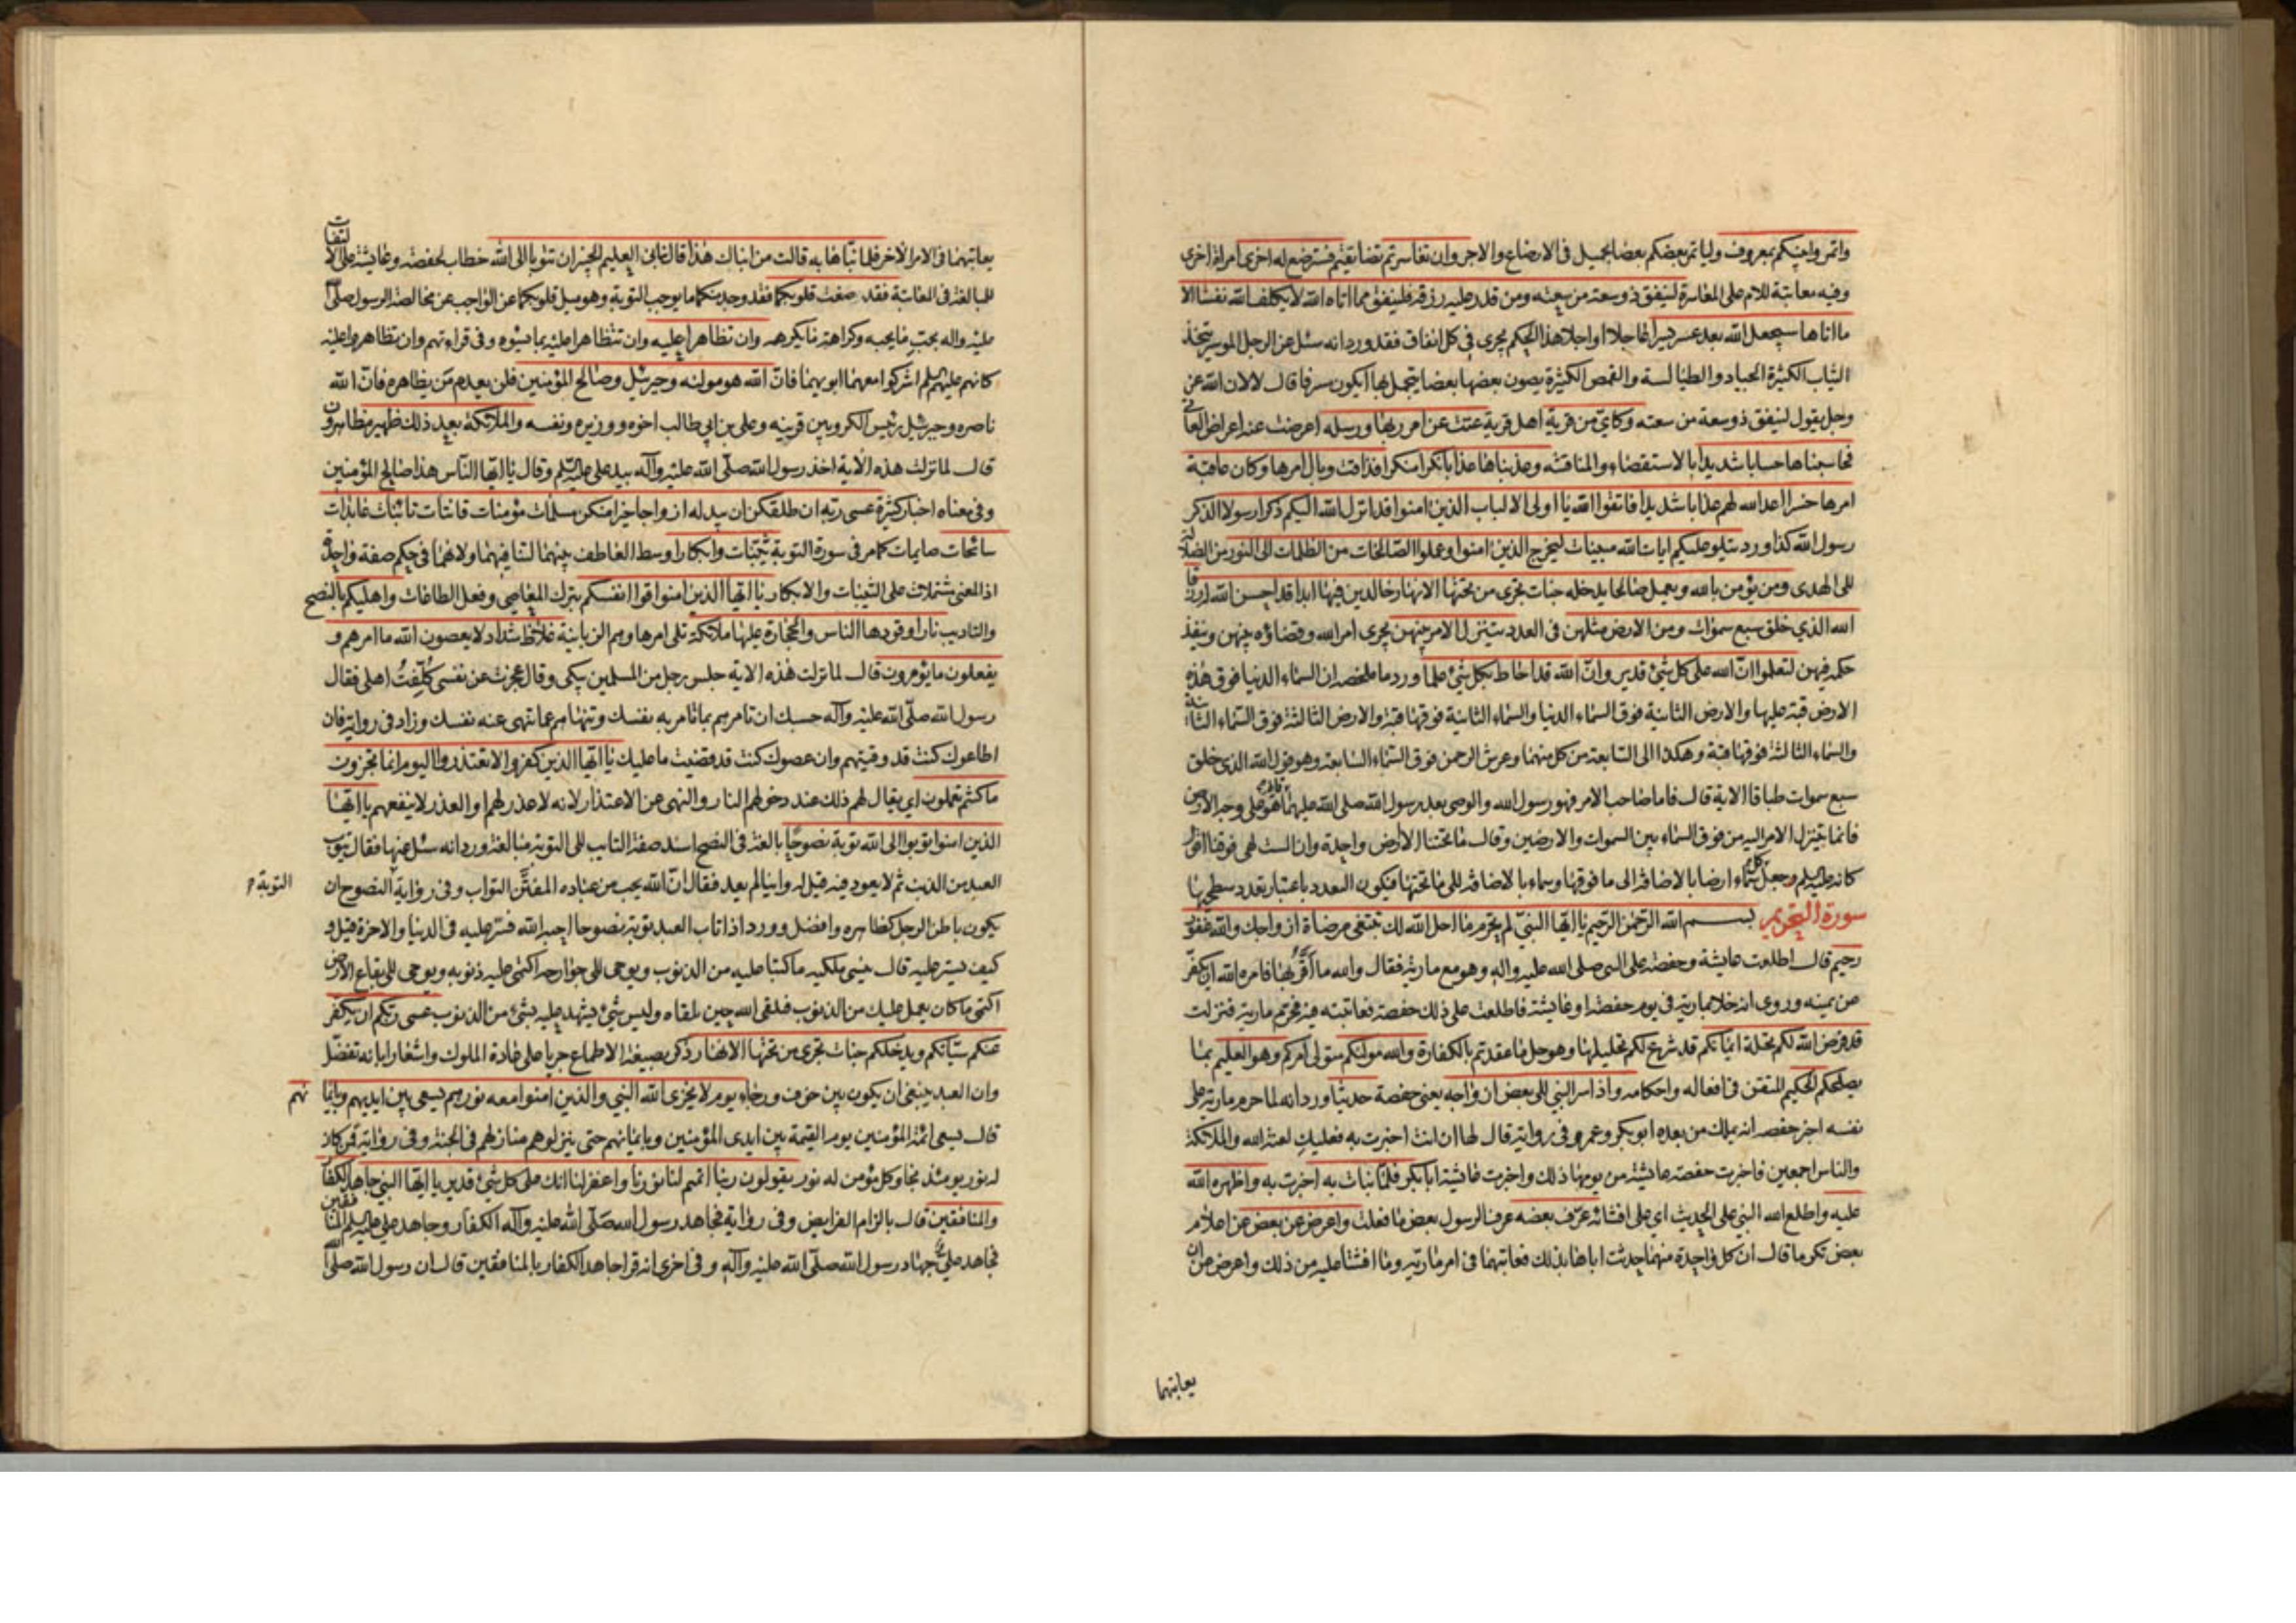 واتمروا بينكم بمعروف وليأتمر بعضكم بعضا بجميل في الارضاع والاجر وان تعاسرتم تضايقتم فسترضع له اخرى امراة اخرى
وفيه معاتبة للام على المعاسرة لينفق ذو سعة من سعته ومن قدر عليه رزقه فلينفق مما اتاه الله لا يكلف الله نفسا الا
ما اتاها سيجعل الله بعد عسر يسرا عاجلا او اجلا هذا الحكم يجرى في كل انفاق فقد ورد انه سئل عن الرجل الموسر يتخذ
الثياب الكثيرة الجياد والطيالسة والقمص الكثيرة يصون بعضها بعضا يتجمل بها ايكون مسرفا قال لا لان الله عز
وجل يقول لينفق ذو سعة من سعته وكاي من قرية اهل قرية عتت عن امر ربها ورسله اعرضت عنه اعراض العاتى
فحاسبناها حسابا شديدا بالاستقصاء والمناقشه وعذبناها عذابا نكرا منكرا فذاقت وبال امرها وكان عاقبة
امرها خسرا اعد الله لهم عذابا شديدا فاتقوا الله يا اولى الالباب الذين امنوا قد انزل الله اليكم ذكرا رسولا الذكر
رسول الله كذا ورد يتلو عليكم ايات الله مبينات ليخرج الذين امنوا وعملوا الصالحات من الظلمات الى النور من الضلالة
الى الهدى ومن يؤمن بالله ويعمل صالحا يدخله جنات تجرى من تحتها الانهار خالدين فيها ابدا قد احسن الله له رزقا
الله الذي خلق سبع سموات ومن الارض مثلهن في العدد يتنزل الامر بينهن يجرى امر الله وقضاؤه بينهن وينفذ
حكمه فيهن لتعلموا ان الله على كل شئ قدير وان الله قد احاط بكل شئ علما ورد ما ملخصه ان السماء الدنيا فوق هذه
الارض قبة عليها والارض الثانية فوق السماء الدنيا والسماء الثانية فوقها قبة والارض الثالثة فوق السماء الثانية
والسماء الثالثة فوقها قبة وهكذا الى السابعة من كل منهما وعرش الرحمن فوق السماء السابعة وهو قول الله الذي خلق
سبع سموات طباقا الاية قال فاما صاحب الامر فهو رسول الله والوصى بعد رسول الله صلى الله عليهما قائم هو على وجه الارض
فانما يتنزل الامر اليه من فوق السماء بين السموات والارضين وقال ما تحتنا الا ارض واحدة وان الست لهي فوقنا اقول
كانه عليه السلم وجعل كل سماء ارضا بالاضافة الى ما فوقها وسماء بالاضافة الى ما تحتها فيكون التعدد باعتبار تعدد سطحيها
سورة التحريم بسم الله الرحمن الرحيم يا ايها النبي لم تحرم ما احل الله لك تبتغى مرضاة ازواجك والله غفور
رحيم قال اطلعت عايشة وحفصة على النبي صلى الله عليه واله وهو مع مارية فقال والله ما اقربها فامره الله ان يكفر
عن يمينه وروى انه خلا بمارية في يوم حفصة او عايشة فاطلعت على ذلك حفصة فعاتبته فيه فحرم مارية فنزلت
قد فرض الله لكم تحلة ايمانكم قد شرع لكم تحليلها وهو حل ما عقدتم بالكفارة والله موليكم متولى امركم وهو العليم بما
يصلحكم الحكيم المتقن في افعاله واحكامه واذ اسر النبي الى بعض ازواجه يعنى حفصة حديثا ورد انه لما حرم مارية على
نفسه اخبر حفصه انه يملك من بعده ابو بكر وعمر وفي رواية قال لها ان انت اخبرت به فعليك لعنة الله والملائكة
والناس اجمعين فاخبرت حفصة عايشة من يومها ذلك واخبرت عايشة ابا بكر فلما نبات به اخبرت به واظهره الله
عليه واطلع الله النبي على الحديث اي على افشائه عرف بعضه عرف الرسول بعض ما فعلت واعرض عن بعض عن اعلام
بعض تكرما قال ان كل واحدة منهما حدثت اباها بذلك فعاتبهما في امر مارية وما افشتا عليه من ذلك واعرض عن ان
يعاتبهما
يعاتبهما في الامر الاخر فلما نباها به قالت من انباك هذا قال نبانى العليم الخبير ان تتوبا الى الله خطاب لحفصة وعايشة على الالتفات
للمبالغة في المعاتبة فقد صغت قلوبكما فقد وجد منكما ما يوجب التوبة وهو ميل قلوبكما عن الواجب من مخالصة الرسول صلى الله
عليه واله بحب ما يحبه وكراهة ما يكرهه وان تظاهرا عليه وان تتظاهرا عليه بما يسؤه وفي قراءتهم وان تظاهروا عليه
كانهم عليهم السلم اشركوا معهما ابويهما فان الله هو موليه وجبرئيل وصالح المؤمنين فلن يعدم من يظاهره فان الله
ناصره وجبرئيل رئيس الكروبيين قرينه وعلى بن ابي طالب اخوه ووزيره ونفسه والملائكة بعد ذلك ظهير مظاهرون
قال لما نزلت هذه الاية اخذ رسول الله صلى الله عليه وآله بيد على عليه السلم وقال يا ايها الناس هذا صالح المؤمنين
وفي معناه اخبار كثيرة عسى ربه ان طلقكن ان يبدله ازواجا خيرا منكن مسلمات مؤمنات قانتات تائبات عابدات
سائحات صايمات كما مر في سورة التوبة ثيبات وابكارا وسط العاطف بينهما لتنافيهما ولانهما في حكم صفة واحدة
اذ المعنى مشتملات على الثيبات والابكار يا ايها الذين امنوا قوا انفسكم بترك المعاصى وفعل الطاعات واهليكم بالنصح
والتاديب نارا وقودها الناس والحجارة عليها ملائكة تلى امرها وهم الزبانية غلاظ شداد لا يعصون الله ما امرهم و
يفعلون ما يؤمرون قال لما نزلت هذه الاية جلس رجل من المسلمين يبكى وقال عجزت عن نفسى كلفت اهلى فقال
رسول الله صلى الله عليه وآله حسبك ان تامرهم بما تامر به نفسك وتنهاهم عما تنهى عنه نفسك وزاد في رواية فان
اطاعوك كنت قد وقيتهم وان عصوك كنت قد قضيت ما عليك يا ايها الذين كفروا لا تعتذروا اليوم انما تجزون
ما كنتم تعملون اي يقال لهم ذلك عند دخولهم النار والنهى عن الاعتذار لانه لا عذر لهم او العذر لا ينفعهم يا ايها
الذين امنوا توبوا الى الله توبة نصوحا بالغة في النصح اسند صفة التايب الى التوبة مبالغة ورد انه سئل عنها فقال يتوب
العبد من الذنب ثم لا يعود فيه قيل له واينا لم يعد فقال ان الله يحب من عباده المفتن التواب وفي رواية النصوح ان
التوبة
يكون باطن الرجل كظاهره وافضل وورد اذا تاب العبد توبة نصوحا احبه الله فستر عليه في الدنيا والاخرة قيل و
كيف يستر عليه قال ينسى ملكيه ما كتبا عليه من الذنوب ويوحى الى جوارحه اكتمى عليه ذنوبه ويوحى الى بقاع الارض
اكتمى ما كان يعمل عليك من الذنوب فلقى الله حين يلقاه وليس شئ يشهد عليه بشئ من الذنوب عسى ربكم ان يكفر
عنكم سيأتكم ويدخلكم جنات تجرى من تحتها الانهار ذكر بصيغة الاطماع جريا على عادة الملوك واشعارا بانه تفضل
وان العبد ينبغى ان يكون بين خوف ورجاء يوم لا يخزى الله النبي والذين امنوا معه نورهم يسعى بين ايديهم وبايمانهم
قال يسعى ائمة المؤمنين يوم القيمة بين ايدى المؤمنين وبايمانهم حتى ينزلوهم منازلهم في الجنة وفي رواية فمن كان
له نور يومئذ نجا وكل مؤمن له نور يقولون ربنا اتمم لنا نورنا واغفر لنا انك على كل شئ قدير يا ايها النبي جاهد الكفار
والمنافقين قال بالزام الفرايض وفي رواية فجاهد رسول الله صلى الله عليه وآله الكفار وجاهد على عليه السلم المنافقين
فجاهد على ع جهاد رسول الله صلى الله عليه وآله وفي اخرى انه قرا جاهد الكفار بالمنافقين قال ان رسول الله صلى الله